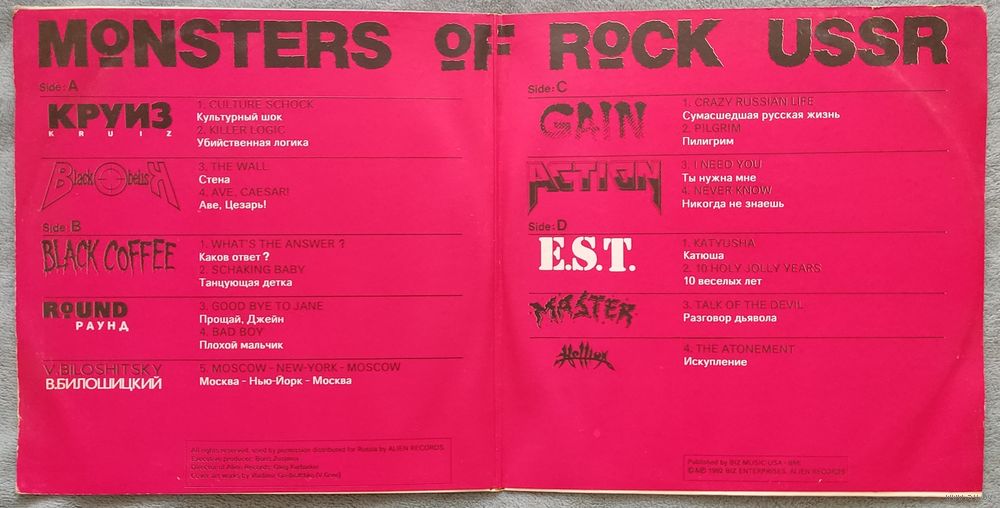 MONSTERS OF ROCK USSR
Side: A
КРУИЗ
KRUIZ
1. CULTURE SCHOCK
Культурный шок
2. KILLER LOGIC
Убийственная логика
Black Obelisk
3. THE WALL
Стена
4. AVE, CAESAR!
Аве, Цезарь!
Side: B
BLACK COFFEE
1. WHAT'S THE ANSWER ?
Каков ответ ?
2. SCHAKING BABY
Танцующая детка
ROUND
РАУНД
3. GOOD BYE TO JANE
Прощай, Джейн
4. BAD BOY
Плохой мальчик
V. BILOSHITSKY
В.БИЛОШИЦКИЙ
5. MOSCOW - NEW-YORK - MOSCOW
Москва - Нью-Йорк - Москва
All rights reserved, used by permission distributed for Russia by ALIEN RECORDS
Executive producer: Boris
Director of Alien Records: Oleg
Cover art works by Vladimir
Side: C
GAIN
1. CRAZY RUSSIAN LIFE
Сумасшедшая русская жизнь
2. PILGRIM
Пилигрим
ACTION
3. I NEED YOU
Ты нужна мне
4. NEVER KNOW
Никогда не знаешь
Side: D
E.S.T.
1. KATYUSHA
Катюша
2. 10 HOLY JOLLY YEARS
10 веселых лет
MASTER
3. TALK OF THE DEVIL
Разговор дьявола
Hellion
4. THE ATONEMENT
Искупление
Published by BIZ MUSIC-USA - BMI
1992 BIZ ENTERPRISES, ALIEN RECORDS